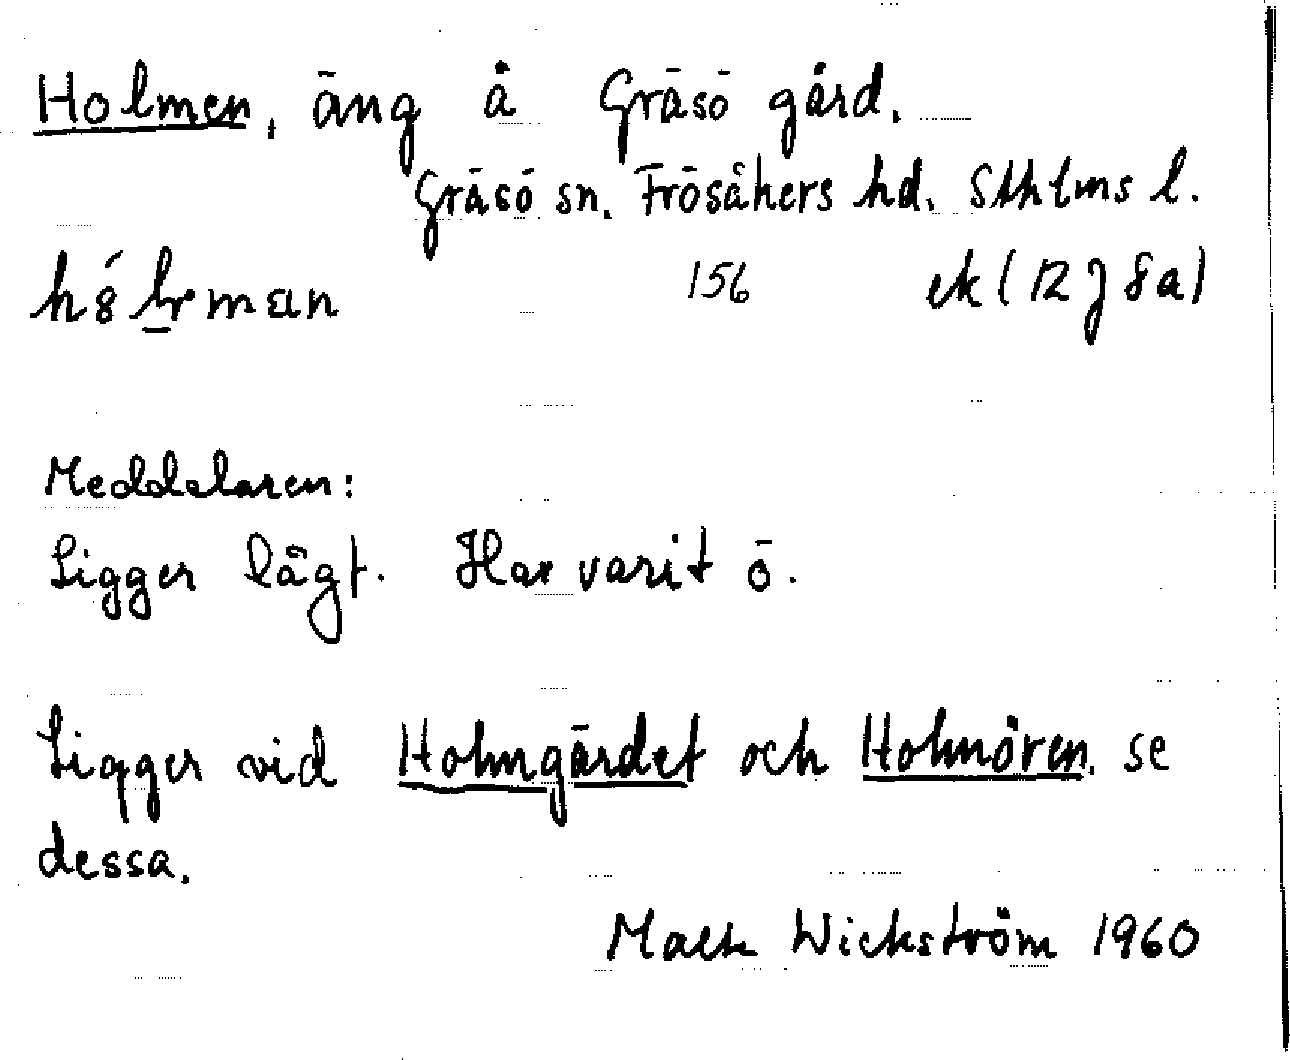 Holmen, äng å Gräsö gård.
Gräsö sn. Frösåkers hd. Sthlms l.
156 ek (12 J 8a)
Meddelaren:
Ligger lågt. Har varit ö.
Ligger vid Holmgärdet och Holmören, se
dessa.
Wickström 1960